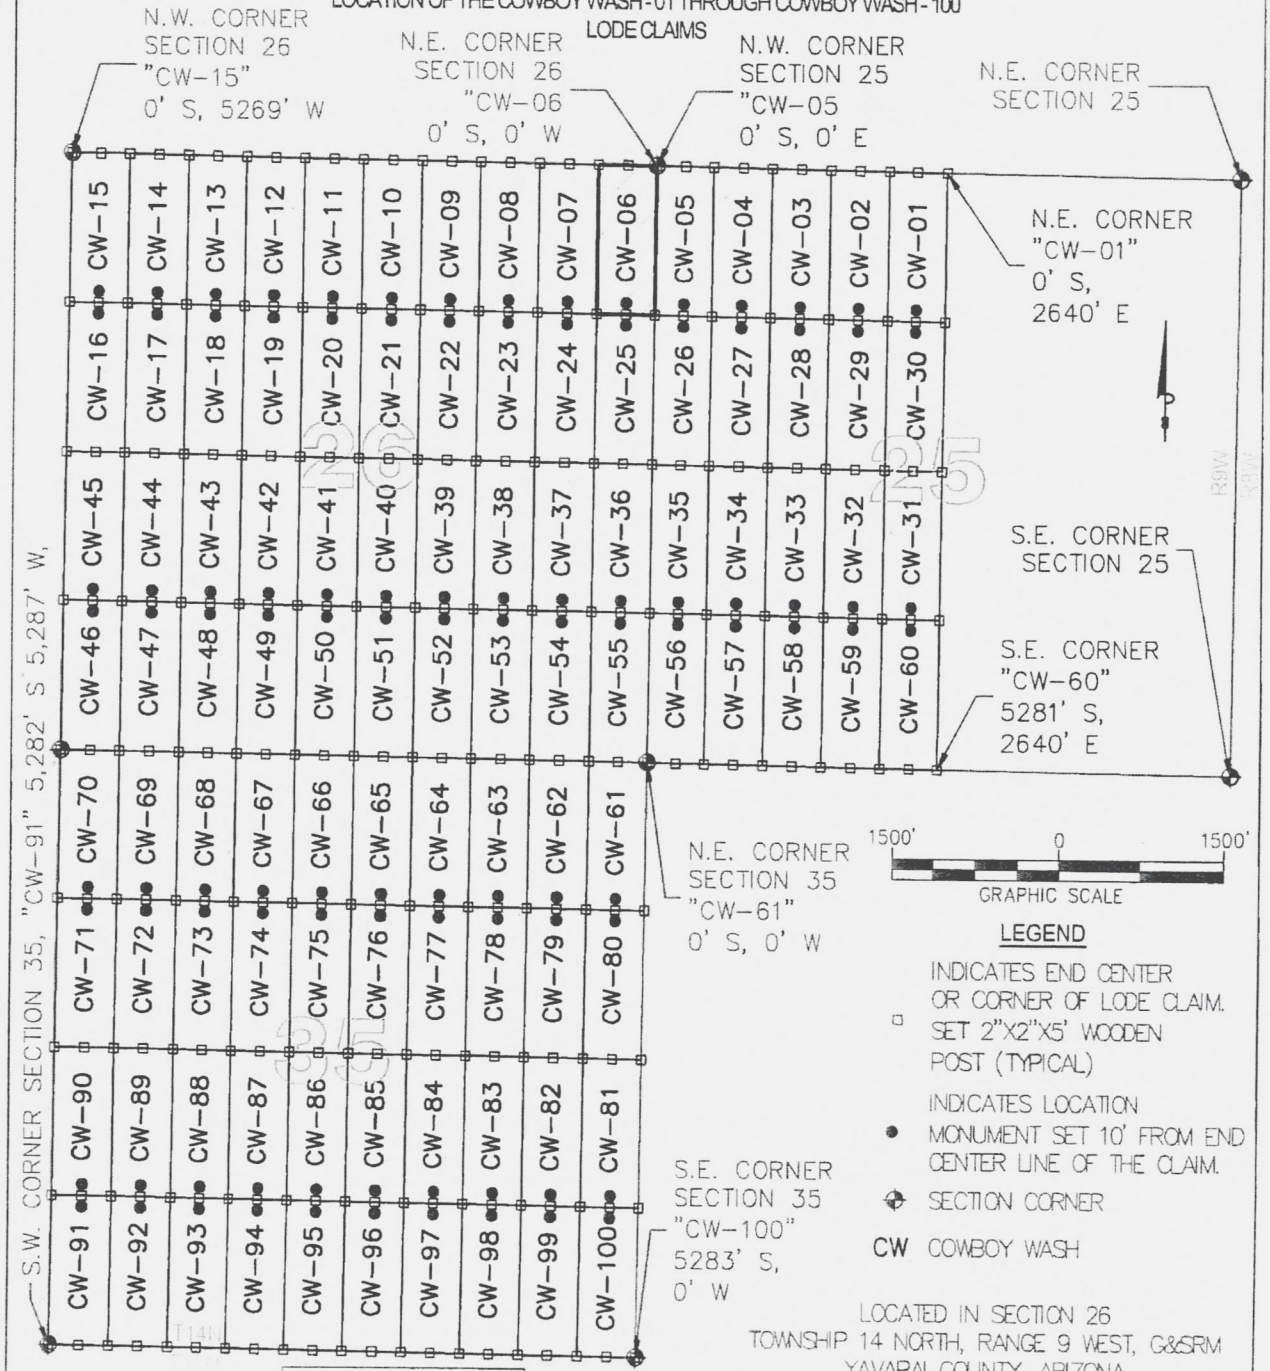 LOCATION OF THE COWBOY WASH-01 THROUGH COWBOY WASH-100
LODE CLAIMS
N.W. CORNER
SECTION 26
"CW-15"
0' S, 5269' W
N.E. CORNER
SECTION 26
"CW-06
0' S, 0' W
N.W. CORNER
SECTION 25
"CW-05
0' S, 0' E
N.E. CORNER
SECTION 25
CW-15 CW-14 CW-13 CW-12 CW-11 CW-10 CW-09 CW-08 CW-07 CW-06 CW-05 CW-04 CW-03 CW-02 CW-01
N.E. CORNER
"CW-01"
0' S,
2640' E
CW-16 CW-17 CW-18 CW-19 CW-20 CW-21 CW-22 CW-23 CW-24 CW-25 CW-26 CW-27 CW-28 CW-29 CW-30
26
25
R9W
R8W
CW-45 CW-44 CW-43 CW-42 CW-41 CW-40 CW-39 CW-38 CW-37 CW-36 CW-35 CW-34 CW-33 CW-32 CW-31
S.E. CORNER
SECTION 25
CW-46 CW-47 CW-48 CW-49 CW-50 CW-51 CW-52 CW-53 CW-54 CW-55 CW-56 CW-57 CW-58 CW-59 CW-60
S.E. CORNER
"CW-60"
5281' S,
2640' E
CW-70 CW-69 CW-68 CW-67 CW-66 CW-65 CW-64 CW-63 CW-62 CW-61
N.E. CORNER
SECTION 35
"CW-61"
0' S, 0' W
CW-71 CW-72 CW-73 CW-74 CW-75 CW-76 CW-77 CW-78 CW-79 CW-80
35
CW-90 CW-89 CW-88 CW-87 CW-86 CW-85 CW-84 CW-83 CW-82 CW-81
CW-91 CW-92 CW-93 CW-94 CW-95 CW-96 CW-97 CW-98 CW-99 CW-100
T14N
S.E. CORNER
SECTION 35
"CW-100"
5283' S,
0' W
S.W. CORNER SECTION 35, "CW-91" 5,282' S 5,287' W,
1500' 0 1500'
GRAPHIC SCALE
LEGEND
INDICATES END CENTER
OR CORNER OF LODE CLAIM.
SET 2"X2"X5' WOODEN
POST (TYPICAL)
INDICATES LOCATION
MONUMENT SET 10' FROM END
CENTER LINE OF THE CLAIM.
SECTION CORNER
CW COWBOY WASH
LOCATED IN SECTION 26
TOWNSHIP 14 NORTH, RANGE 9 WEST, G&SRM
YAVAPAI COUNTY, ARIZONA